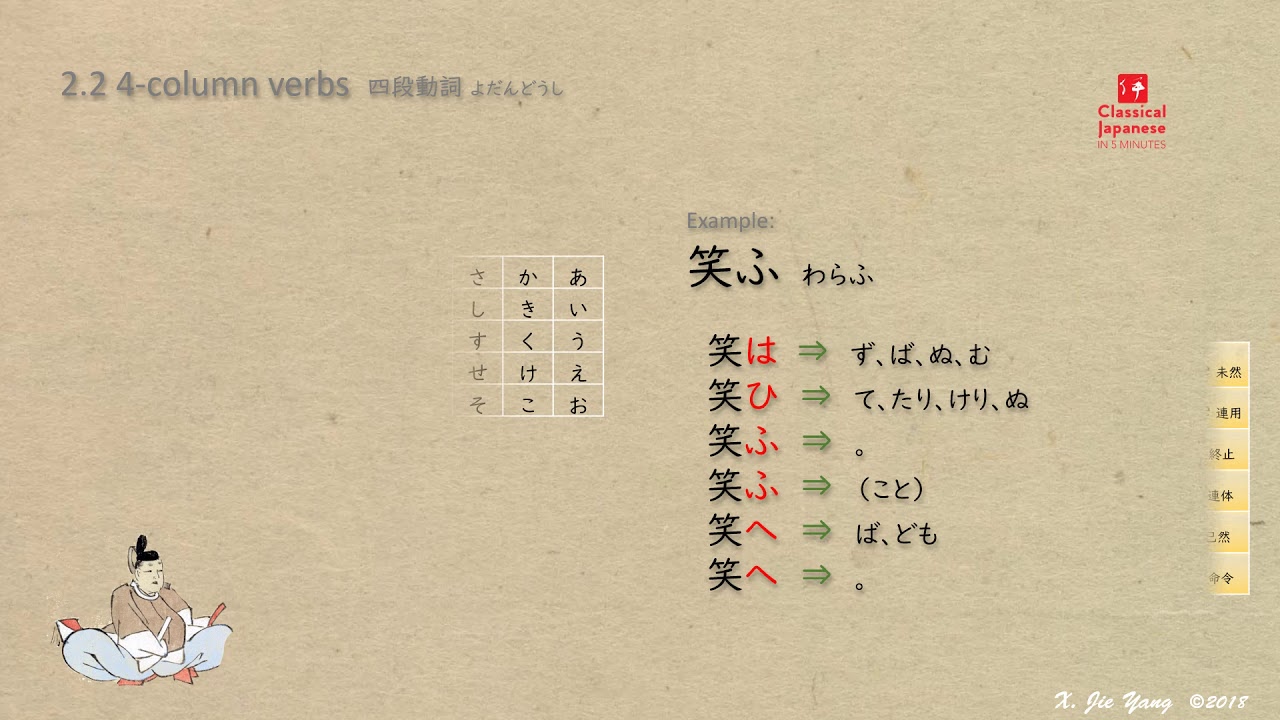 2.2 4-column verbs 四段動詞 よだんどうし
Classical
Japanese
IN 5 MINUTES
さ か あ
し き い
す く う
せ け え
そ こ お
Example:
笑ふ わらふ
笑は ⇒ ず、ば、ぬ、む
笑ひ ⇒ て、たり、けり、ぬ
笑ふ ⇒ 。
笑ふ ⇒ （こと）
笑へ ⇒ ば、ども
笑へ ⇒ 。
未然
連用
終止
連体
已然
命令
X. Jie Yang ©2018